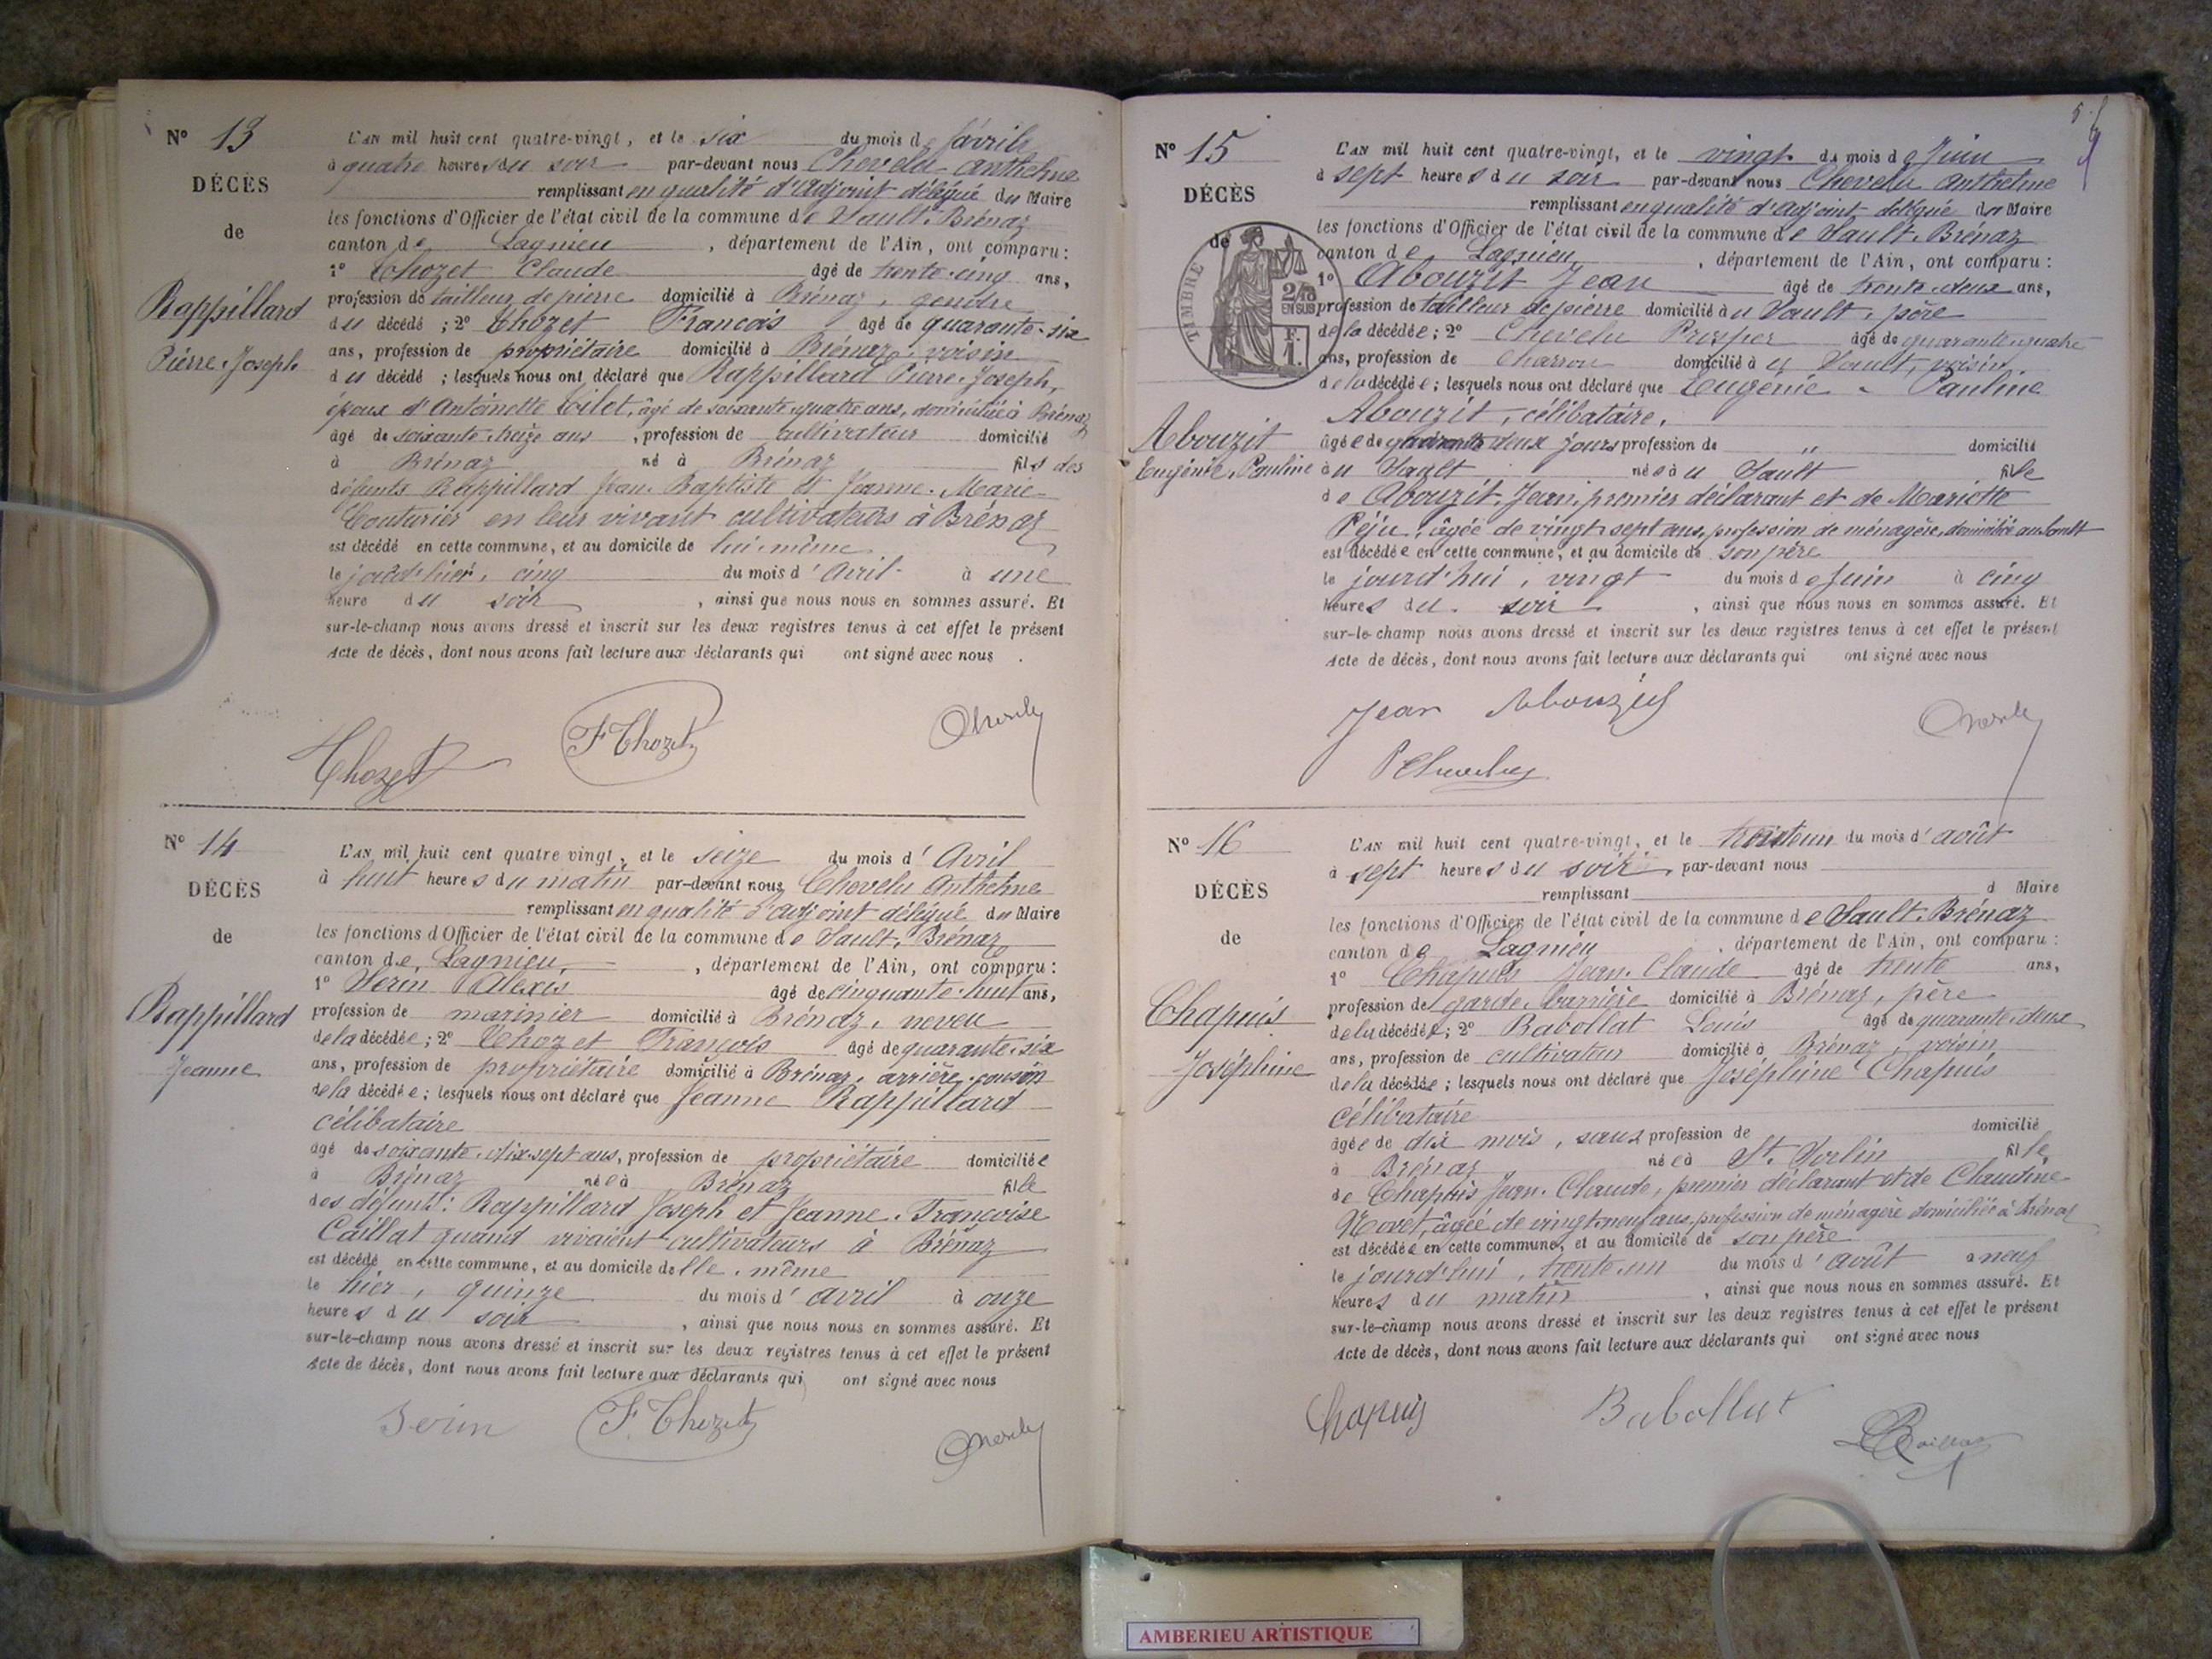 Nº 13
DÉCÈS
de
Rappillard
Pierre. Joseph
L'AN mil huit cent quatre-vingt, et le six du mois d
à quatre heures du soir par-devant nous Chevelu Anthelme
remplissant en qualité d'adjoint délégué du Maire
les fonctions d'Officier de l'état civil de la commune de Sault. Brénaz
canton de Lagnieu, département de l'Ain, ont comparu :
1º Thozet Claude âgé de trente-cinq ans,
profession de tailleur de pierre domicilié à Brénaz, gendre
du décédé ; 2º Thozet François âgé de quarante-six
ans, profession de propriétaire domicilié à Brénaz, voisin
du décédé ; lesquels nous ont déclaré que Rappillard Pierre. Joseph,
époux d'Antoinette âgé de soixante quatre ans, domiciliée à Brénaz
âgé de soixante treize ans, profession de cultivateur domicilié
à Brénaz né à Brénaz fils des
défunts Rappillard Jean. Baptiste et Jeanne. Marie
Couturier en leur vivant cultivateurs à Brénaz
est décédé en cette commune, et au domicile de lui-même
le jour d'hier, cinq du mois d'Avril à une
heure du soir, ainsi que nous nous en sommes assuré. Et
sur-le-champ nous avons dressé et inscrit sur les deux registres tenus à cet effet le présent
Acte de décès, dont nous avons fait lecture aux déclarants qui ont signé avec nous.
Thozet F Thozet
Nº 14
DÉCÈS
de
Rappillard
Jeanne
L'AN mil huit cent quatre vingt, et le seize du mois d'Avril
à huit heures du matin par-devant nous Chevelu Anthelme
remplissant en qualité d'adjoint délégué du Maire
les fonctions d'Officier de l'état civil de la commune de Sault. Brénaz
canton de Lagnieu, département de l'Ain, ont comparu :
1º Serin Alexis âgé de cinquante-huit ans,
profession de marinier domicilié à Brénaz, neveu
de la décédée ; 2º Thozet François âgé de quarante-six
ans, profession de propriétaire domicilié à Brénaz, arrière-cousin
de la décédée ; lesquels nous ont déclaré que Jeanne Rappillard
célibataire
âgé de soixante-dix-sept ans, profession de propriétaire domiciliée
à Brénaz née à Brénaz fille
des défunts : Rappillard Joseph et Jeanne. Françoise
Caillat quand vivaient cultivateurs à Brénaz
est décédé en cette commune, et au domicile d'elle-même
le hier, quinze du mois d'avril à onze
heures du soir, ainsi que nous nous en sommes assuré. Et
sur-le-champ nous avons dressé et inscrit sur les deux registres tenus à cet effet le présent
Acte de décès, dont nous avons fait lecture aux déclarants qui ont signé avec nous
Serin F. Thozet
Nº 15
DÉCÈS
de
TIMBRE
2/10
EN SUS
F.
1.
Abouzit
Eugénie. Pauline
L'AN mil huit cent quatre-vingt, et le vingt du mois de Juin
à sept heures du soir par-devant nous Chevelu Anthelme
remplissant en qualité d'adjoint délégué du Maire
les fonctions d'Officier de l'état civil de la commune de Sault. Brénaz
canton de Lagnieu, département de l'Ain, ont comparu :
1º Abouzit Jean âgé de trente-deux ans,
profession de tailleur de pierre domicilié au Sault, père
de la décédée ; 2º Chevelu Prosper âgé de quarante-quatre
ans, profession de Charron domicilié au Sault, voisin
de la décédée ; lesquels nous ont déclaré que Eugénie - Pauline
Abouzit, célibataire,
âgée de quarante deux jours profession de " domicilié
au Sault née au Sault fille
de Abouzit Jean, premier déclarant et de Mariette
Péju, âgée de vingt-sept ans, profession de ménagère, domiciliée au Sault
est décédée en cette commune, et au domicile de son père
le jourd'hui, vingt du mois de Juin à cinq
heures du soir, ainsi que nous nous en sommes assuré. Et
sur-le-champ nous avons dressé et inscrit sur les deux registres tenus à cet effet le présent
Acte de décès, dont nous avons fait lecture aux déclarants qui ont signé avec nous
Jean Abouzit
Nº 16
DÉCÈS
de
Chapuis
Joséphine
L'AN mil huit cent quatre-vingt, et le trente un du mois d'août
à sept heures du soir, par-devant nous
remplissant d Maire
les fonctions d'Officier de l'état civil de la commune de Sault. Brénaz
canton de Lagnieu, département de l'Ain, ont comparu :
1º Chapuis Jean. Claude âgé de trente ans,
profession de garde-barrière domicilié à Brénaz, père
de la décédée ; 2º Babollat Louis âgé de quarante-deux
ans, profession de cultivateur domicilié à Brénaz, voisin
de la décédée ; lesquels nous ont déclaré que Joséphine Chapuis
célibataire
âgée de dix mois, sans profession de domicilié
à Brénaz née à St. Sorlin fille
de Chapuis Jean. Claude, premier déclarant et de Claudine
âgée de vingt-neuf ans, profession de ménagère domiciliée à Brénaz
est décédée en cette commune, et au domicile de son père
le jourd'hui, trente-un du mois d'août à neuf
heures du matin, ainsi que nous nous en sommes assuré. Et
sur-le-champ nous avons dressé et inscrit sur les deux registres tenus à cet effet le présent
Acte de décès, dont nous avons fait lecture aux déclarants qui ont signé avec nous
Chapuis Babollat
AMBERIEU ARTISTIQUE